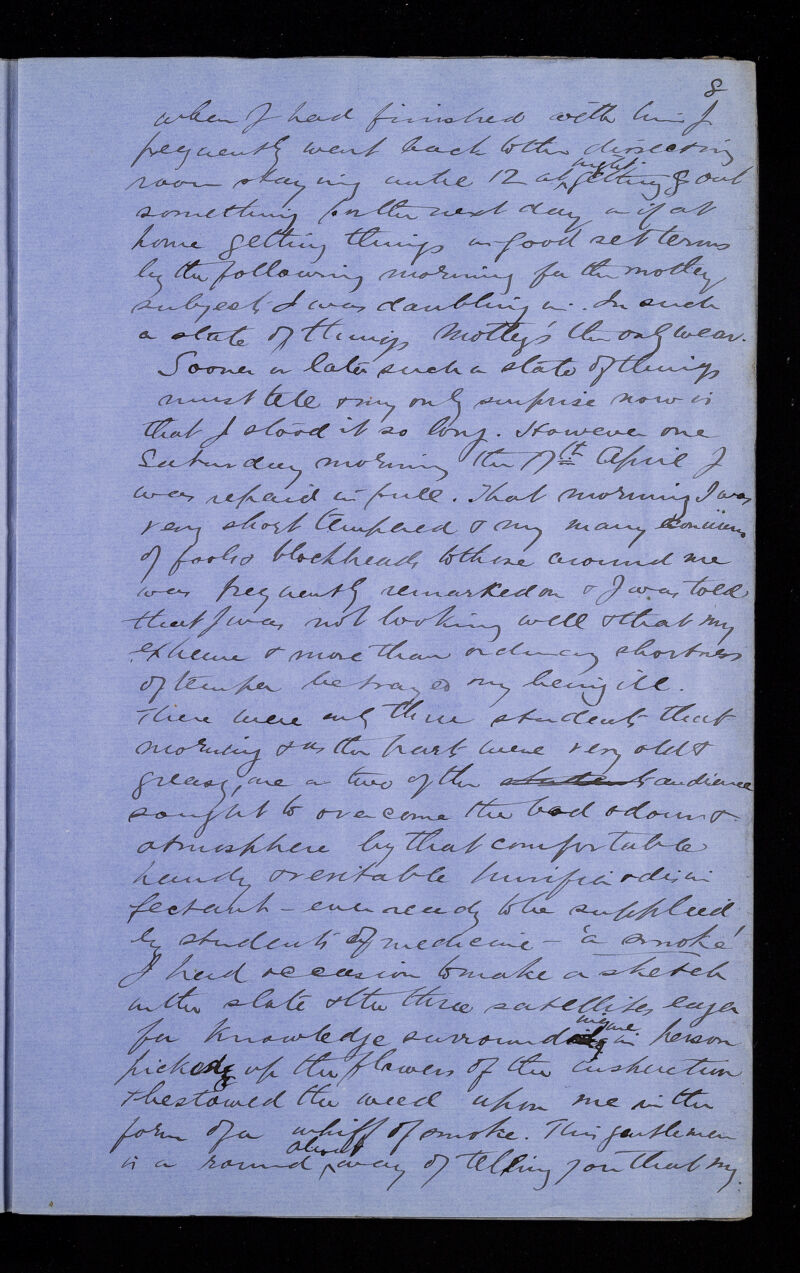 8
when I had finished with him I
frequently went back to the dissecting
room staying until 12 at night getting out
something for the next day or if at
home getting things in good set terms
by the following morning for the motley
subjects I was daubling in. In such
a state of things Motley's the only wear.
Sooner or later such a state of things
must tell & my only surprise now is
that I stood it so long. However one
Saturday morning the 17th April I
was repaid in full. That morning I was
very short tempered & my many
of fools & blockheads to those around me
was frequently remarked on & I was told
that I was not looking well & that my
extreme & more than ordinary shortness
of temper betrayed my being ill.
There were only three students that
morning & as the part were very old &
greasy, one or two of the students audience
sought to overcome the bad odour &
atmosphere by that comfortable
handy & veritable purifier & disin
fectant – ever ready to be supplied
by students of medicine – 'a smoke'
I had occasion to make a sketch
on the slate & the three satellites eager
for knowledge surrounding me in person
picked up the flowers of the
& bestowed the weed upon me in the
form of a whiff of smoke. This gentlemen
is a round about way of telling you that my